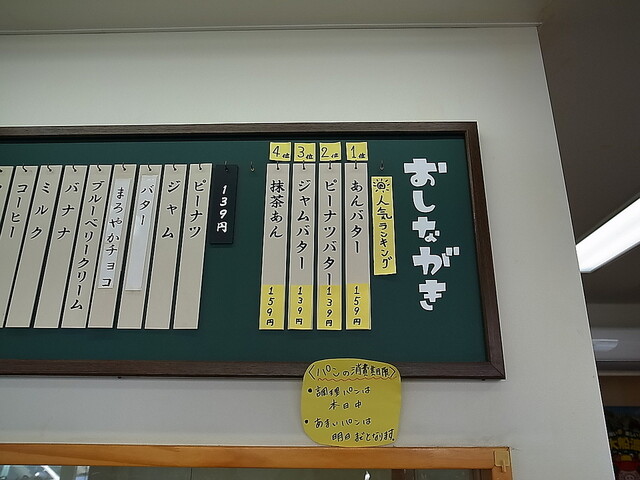 おしながき
人気ランキング
1位
あんバター
159円
2位
ピーナツバター
139円
3位
ジャムバター
139円
4位
抹茶あん
159円
139円
ピーナツ
ジャム
バター
まろやかチョコ
ブルーベリークリーム
バナナ
ミルク
コーヒー
〈パンの消費期限〉
•調理パンは
本日中
•あまいパンは
明日までとなります。